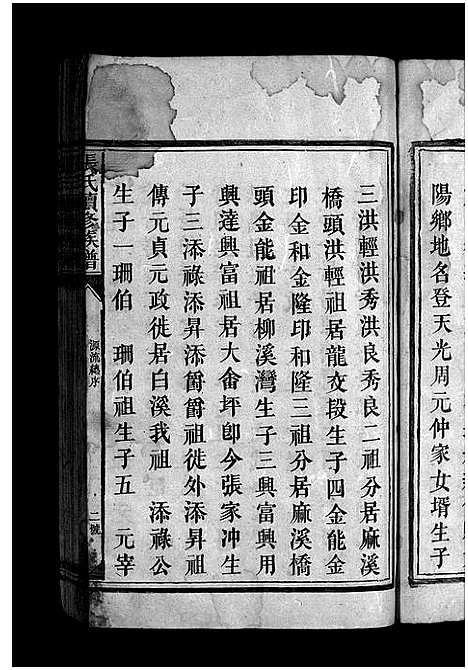 陽鄉地名登天光周元仲家女壻生子
三洪輕洪秀洪良秀良二祖分居麻溪
橋頭洪輕祖居龍妏段生子四金能金
印金和金隆印和隆三祖分居麻溪橋
頭金能祖居柳溪灣生子三興富興用
興達興富祖居大畬坪卽今張家冲生
子三添祿添昇添爵爵祖徙外添昇祖
傳元貞元政徙居白溪我祖 添祿公
生子一珊伯 珊伯祖生子五 元宰
張氏續修族譜
源流總序
二號